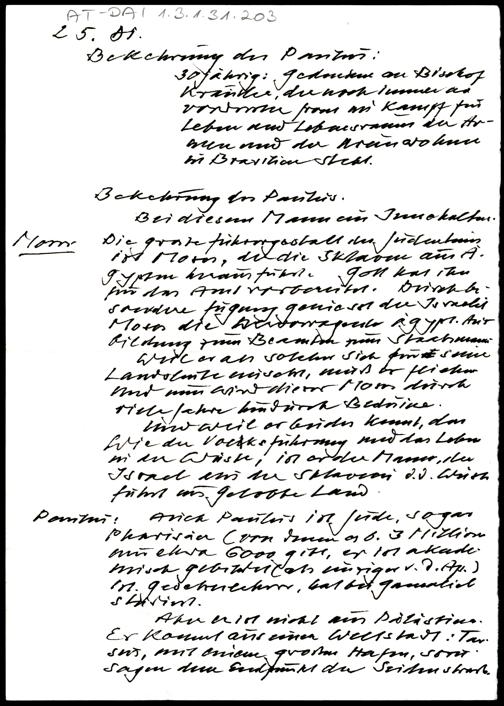 AT-DAI 1.3.1.31.203
25. 01.
Bekehrung des Paulus:
30jährig: Gedenken an Bischof
Kräutler, der noch immer an
vorderster front im Kampf für
Leben und Lebensraum der Ar-
men und der Ureinwohner
in Brasilien steht.
Bekehrung des Paulus.
Bei diesem Mann ein Innehalten.
Moses
Die grosse führergestalt des Judentums
ist Moses, der die Sklaven aus Ä-
gypten herausführt. Gott hat ihn
für das Amt vorbereitet. Durch be-
sondere fügung geniesst der Israelit
Moses die hervorragende ägypt. Aus-
bildung zum Beamten zum Staatsmann
Weil er als solcher sich für seine
Landsleute einsetzt, muß er fliehen
Und nun wird dieser Moses durch
viele Jahre hindurch Beduine.
Und weil er beides kennt, das
Wie der Volksführung und das Leben
in der Wüste, ist er der Mann, der
Israel aus der Sklaverei d.d. Wüste
führt ins gelobte Land.
Paulus:
Auch Paulus ist Jude, sogar
Pharisäer (von denen es b. 3 Million
nur etwa 6000 gibt, er ist akade-
misch gebildet (als einziger v. d. Ap.)
ist Gesetzeslehrer, hat bei Gamaliel
studiert.
Aber er ist nicht aus Palästina.
Er kommt aus einer Weltstadt: Tar-
sus, mit einem grossen Hafen, sozu-
sagen dem Endpunkt der Seidenstrasse